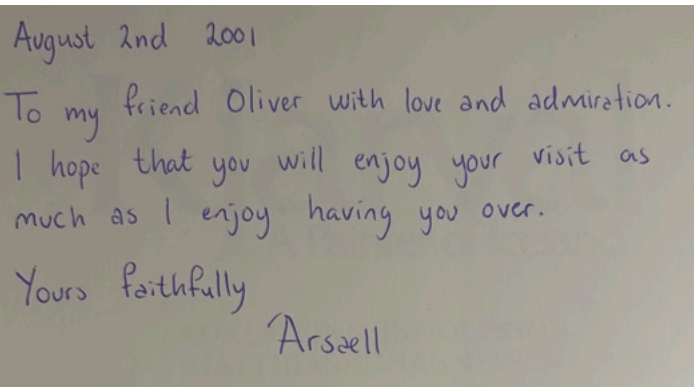 August 2nd 2001
To my friend Oliver with love and admiration.
I hope that you will enjoy your visit as
much as I enjoy having you over.
Yours faithfully
Arsaell